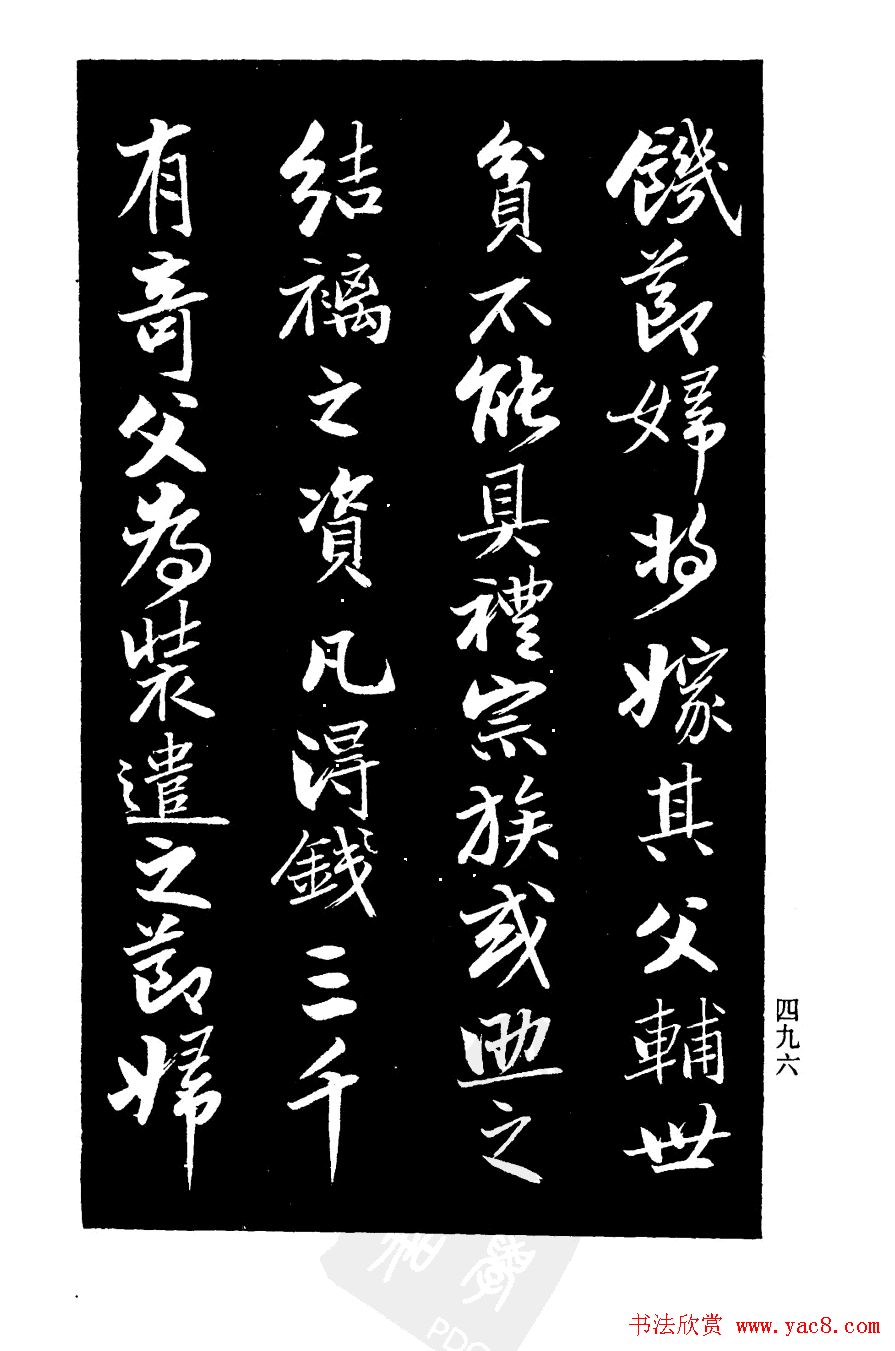 饑節婦將嫁其父輔世
貧不能具禮宗族或助之
結褵之資凡得錢三千
有奇父為裝遣之節婦
四九六
书法欣赏 www.yac8.com